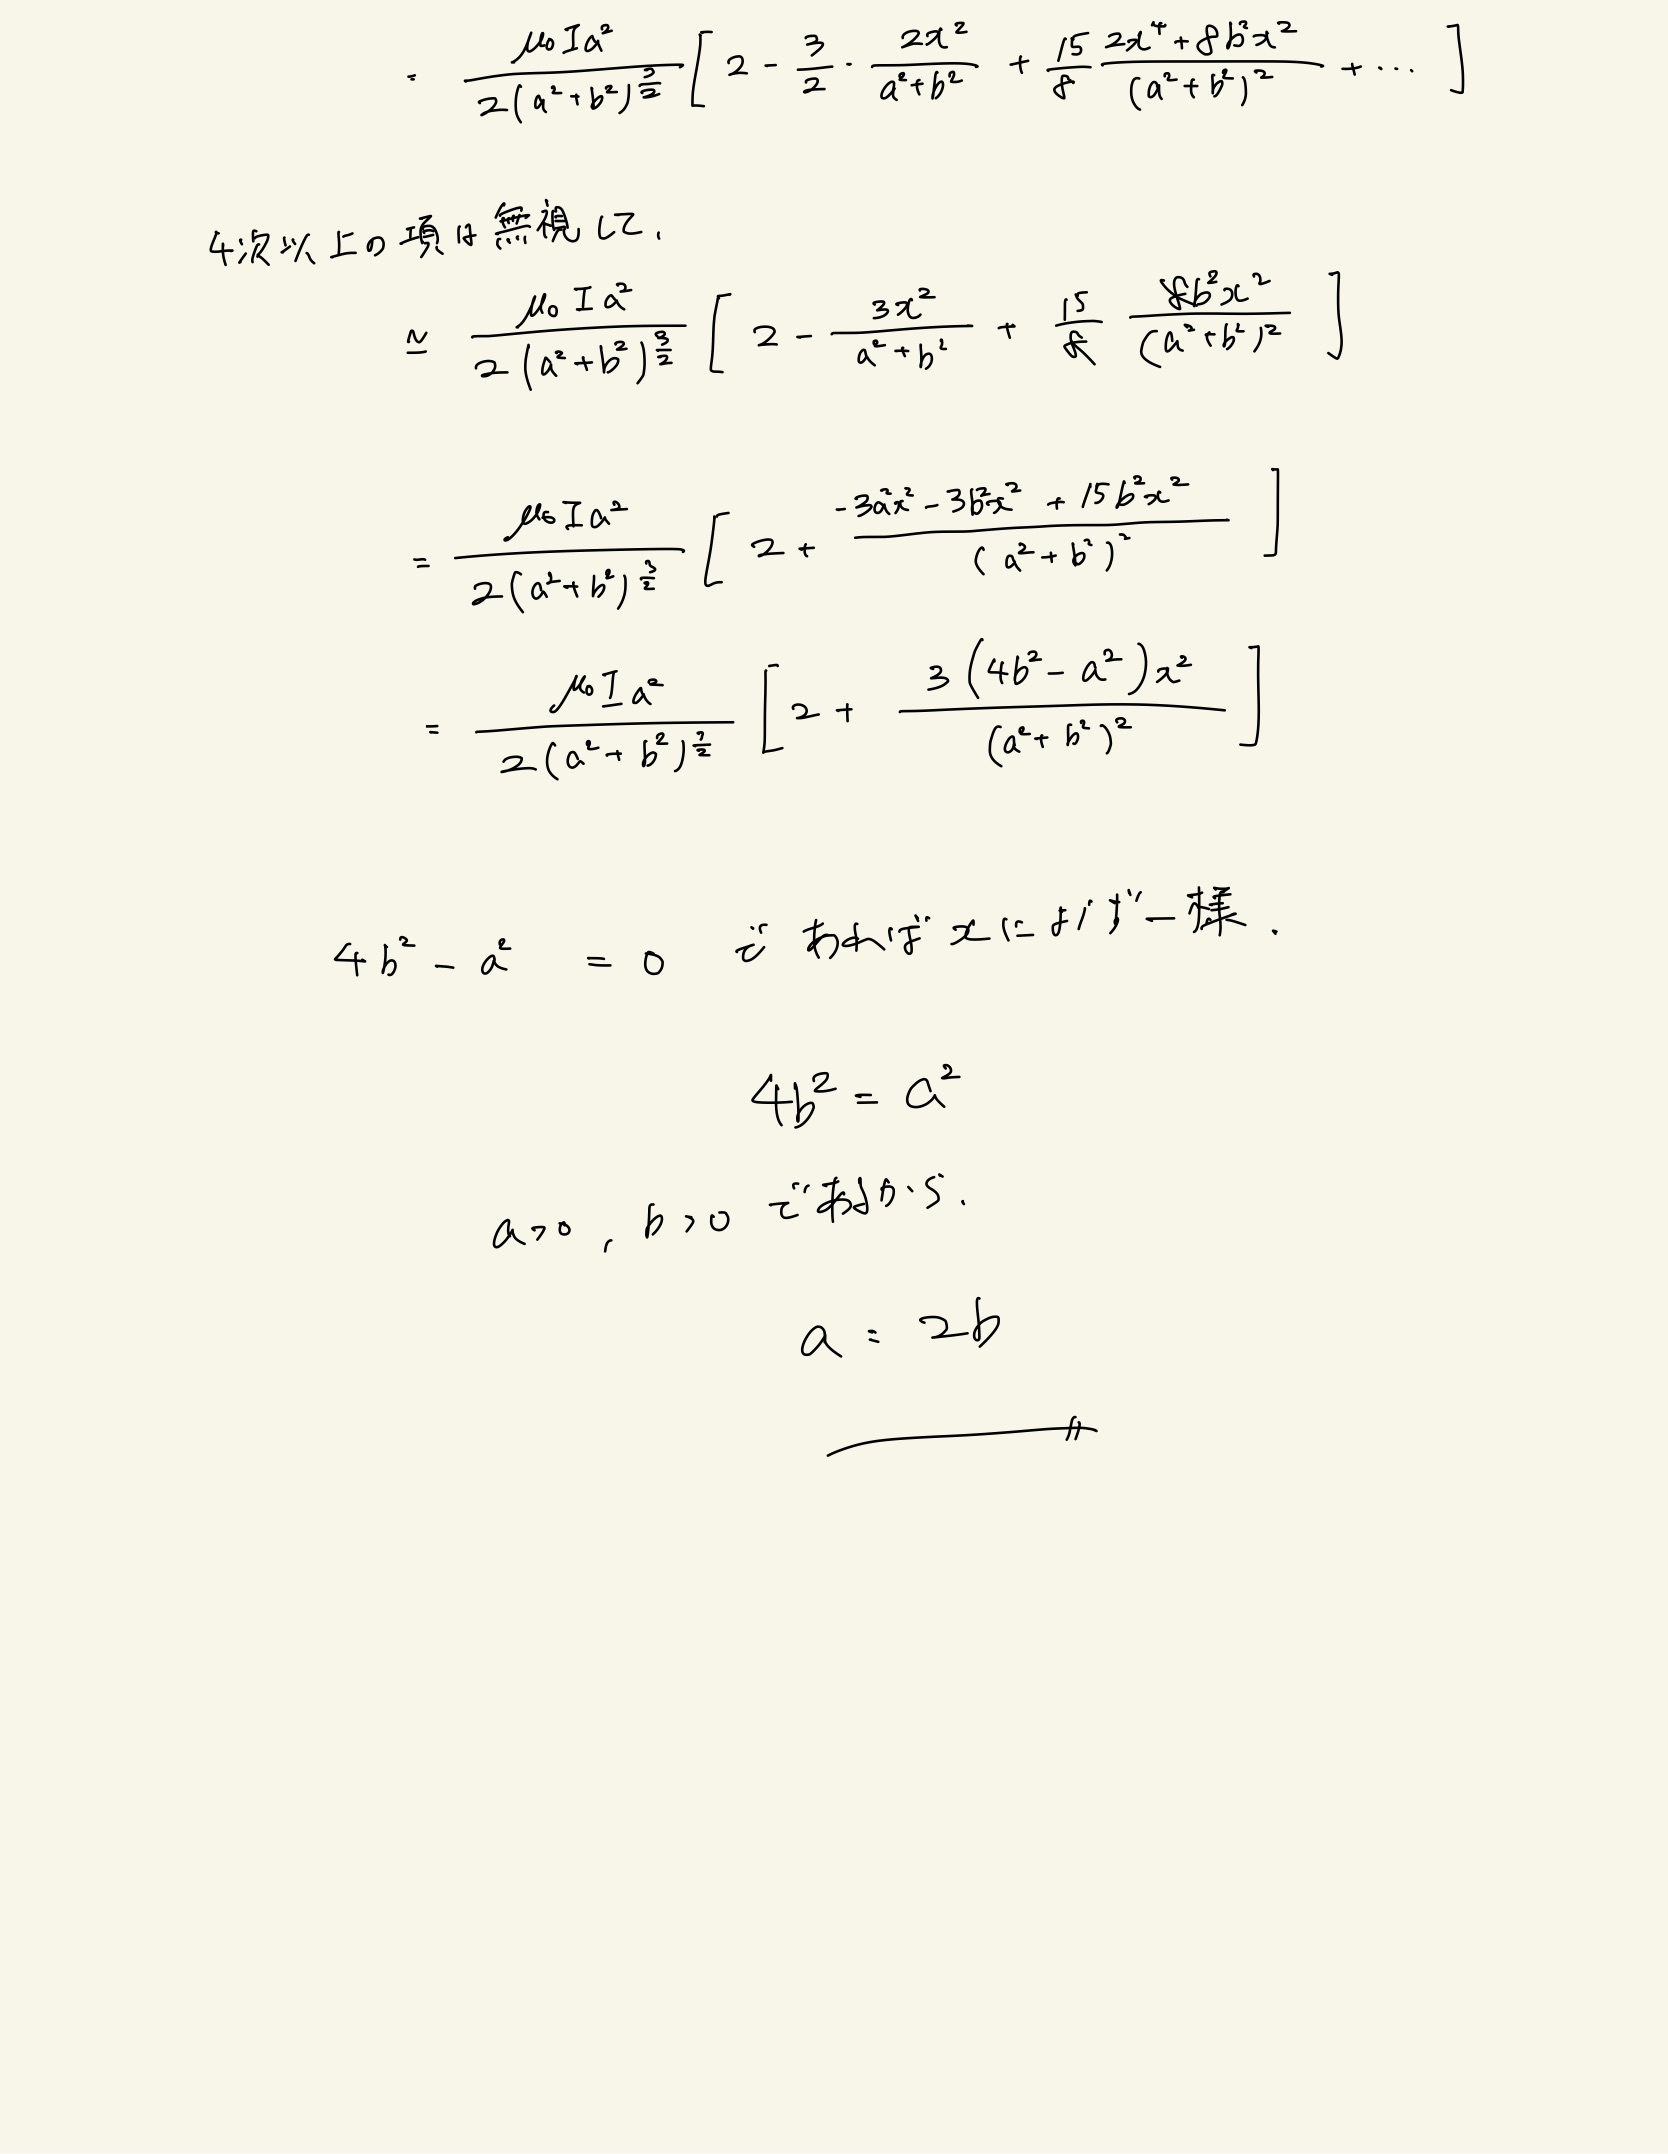 = \frac{μ₀Ia²}{2(a²+b²)^{\frac{3}{2}}} [ 2 - \frac{3}{2} · \frac{2x²}{a²+b²} + \frac{15}{8} \frac{2x⁴+8b²x²}{(a²+b²)²} + ··· ]
4次以上の項は無視して、
≃ \frac{μ₀Ia²}{2(a²+b²)^{\frac{3}{2}}} [ 2 - \frac{3x²}{a²+b²} + \frac{15}{8} \frac{8b²x²}{(a²+b²)²} ]
= \frac{μ₀Ia²}{2(a²+b²)^{\frac{3}{2}}} [ 2 + \frac{-3a²x² - 3b²x² + 15b²x²}{(a²+b²)²} ]
= \frac{μ₀Ia²}{2(a²+b²)^{\frac{3}{2}}} [ 2 + \frac{3(4b²-a²)x²}{(a²+b²)²} ]
4b² - a² = 0 であれば xによらず一様.
4b² = a²
a>0, b>0 であるから.
a = 2b